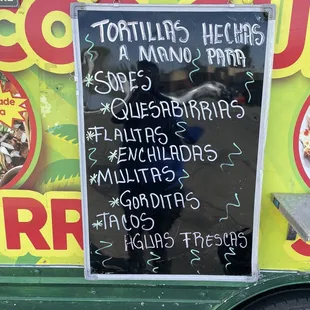 TORTILLAS HECHAS
A MANO PARA
*SOPES
*QUESABIRRIAS
*FLAUTAS
*ENCHILADAS
*MULITAS
*GORDITAS
*TACOS
AGUAS FRESCAS